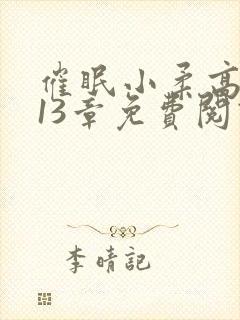 催眠小柔高
13章免費閱
李晴記